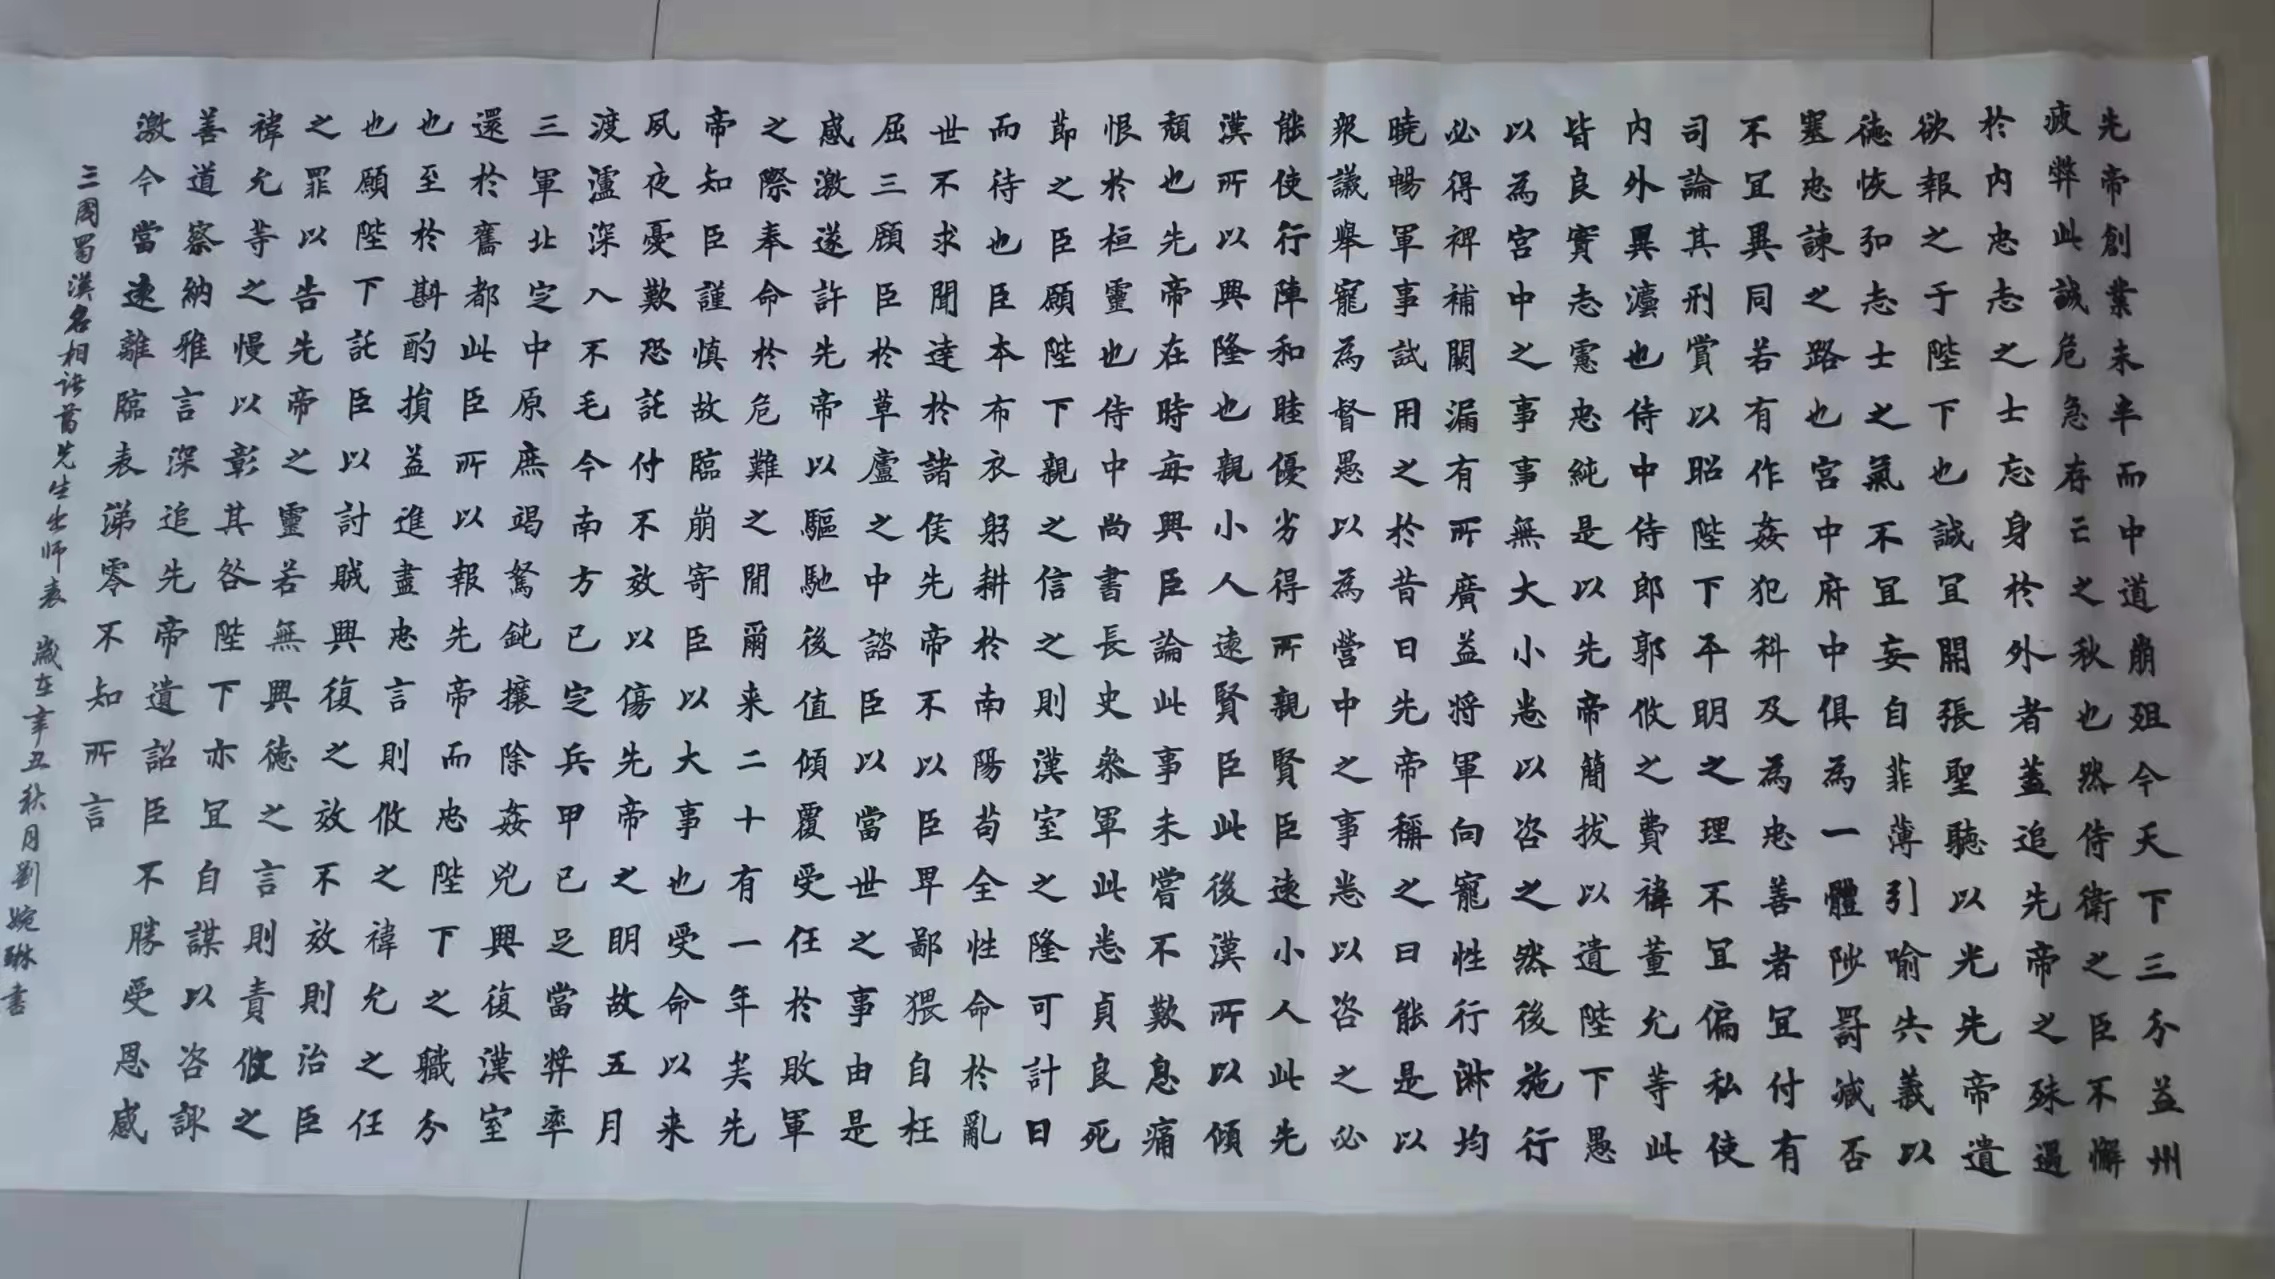 先帝創業未半而中道崩殂今天下三分益州
疲弊此誠危急存亡之秋也然侍衛之臣不懈
於內忠志之士忘身於外者蓋追先帝之殊遇
欲報之于陛下也誠宜開張聖聽以光先帝遺
德恢弘志士之氣不宜妄自菲薄引喻失義以
塞忠諫之路也宮中府中俱為一體陟罰臧否
不宜異同若有作姦犯科及為忠善者宜付有
司論其刑賞以昭陛下平明之理不宜偏私使
內外異灋也侍中侍郎郭攸之費禕董允等此
皆良實志慮忠純是以先帝簡拔以遺陛下愚
以為宮中之事事無大小悉以咨之然後施行
必得裨補闕漏有所廣益將軍向寵性行淋均
曉暢軍事試用之於昔日先帝稱之曰能是以
衆議舉寵為督愚以為營中之事悉以咨之必
能使行陣和睦優劣得所親賢臣遠小人此先
漢所以興隆也親小人遠賢臣此後漢所以傾
頹也先帝在時每興臣論此事未嘗不歎息痛
恨於桓靈也侍中尚書長史參軍此悉貞良死
節之臣願陛下親之信之則漢室之隆可計日
而待也臣本布衣躬耕於南陽苟全性命於亂
世不求聞達於諸侯先帝不以臣卑鄙猥自枉
屈三顧臣於草廬之中諮臣以當世之事由是
感激遂許先帝以驅馳後值傾覆受任於敗軍
之際奉命於危難之間爾来二十有一年矣先
帝知臣謹慎故臨崩寄臣以大事也受命以来
夙夜憂歎恐託付不效以傷先帝之明故五月
渡瀘深入不毛今南方已定兵甲已足當獎率
三軍北定中原庶竭駑鈍攘除姦兇興復漢室
還於舊都此臣所以報先帝而忠陛下之職分
也至於斟酌損益進盡忠言則攸之禕允之任
也願陛下託臣以討賊興復之效不效則治臣
之罪以告先帝之靈若無興德之言則責攸之
禕允等之慢以彰其咎陛下亦宜自謀以咨諏
善道察納雅言深追先帝遺詔臣不勝受恩感
激今當遠離臨表涕零不知所言
三國蜀漢名相諸葛先生出师表 歲在辛丑秋月劉婉琳書